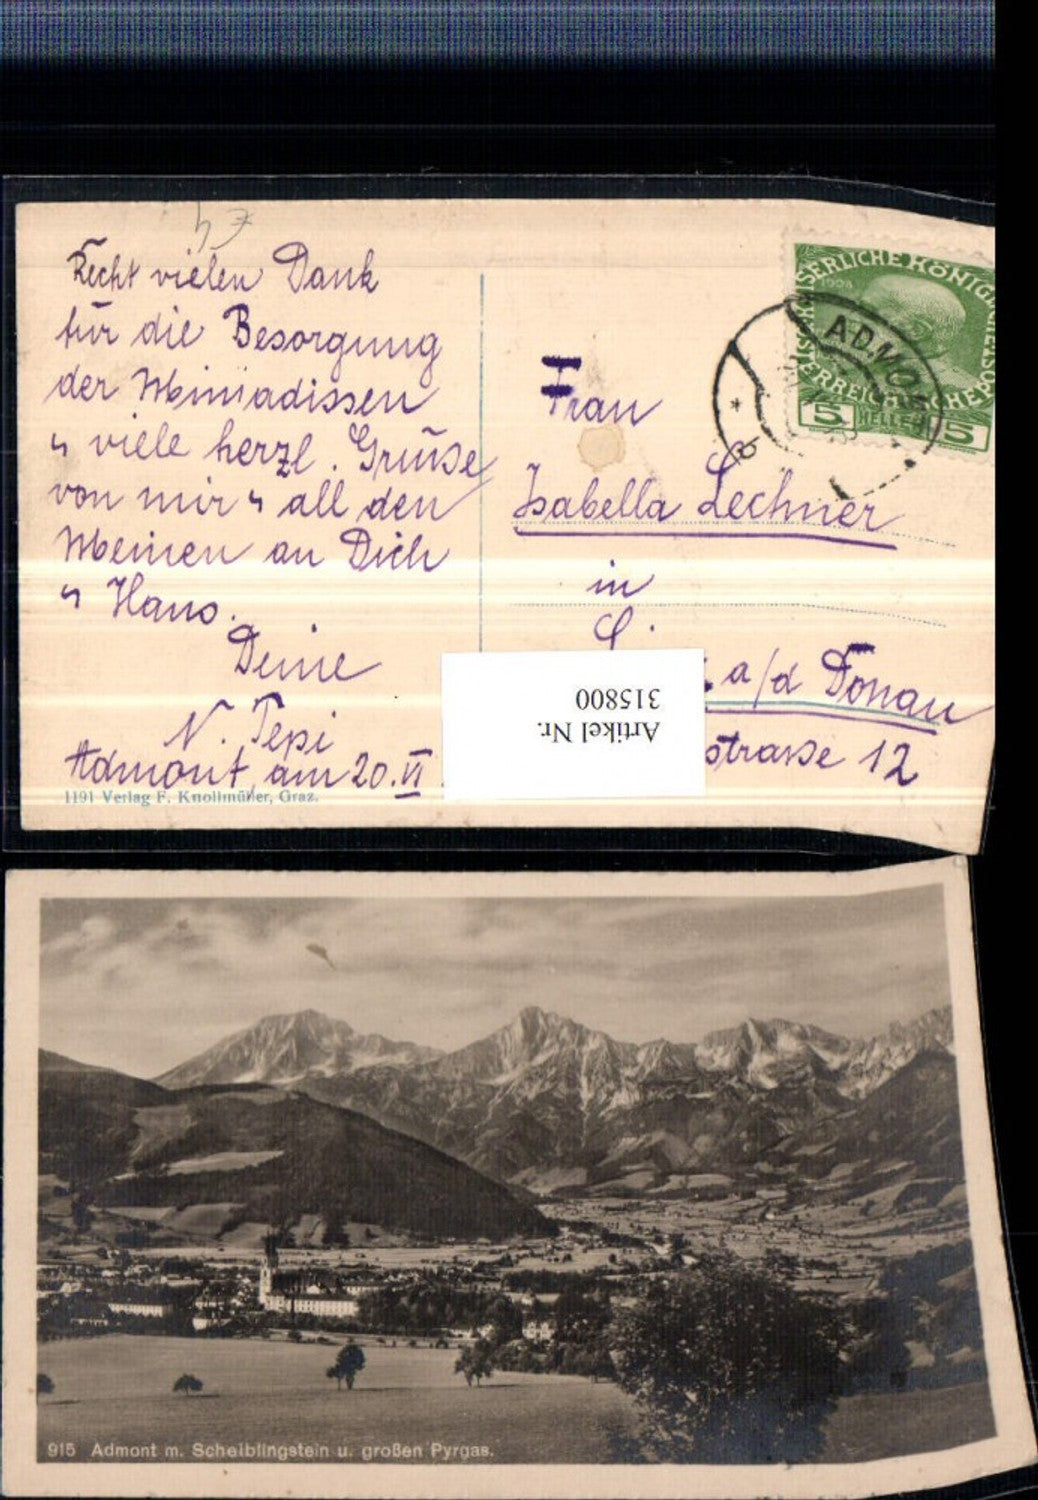 Recht vielen Dank
für die Besorgung
der
u viele herzl. Grüsse
von mir u all den
Meinen an Dich
u Hans.
Deine
N. Pepi
Admont, am 20. VI
1191 Verlag F. Knollmüller, Graz.
KAISERLICHE KÖNIGLICHE
1908
5 HELLER 5
ADMONT
b
Frau
Isabella Lechner
in
L.
a/d Donau
strasse 12
Artikel Nr.
315800
915 Admont m. Scheiblingstein u. großen Pyrgas.